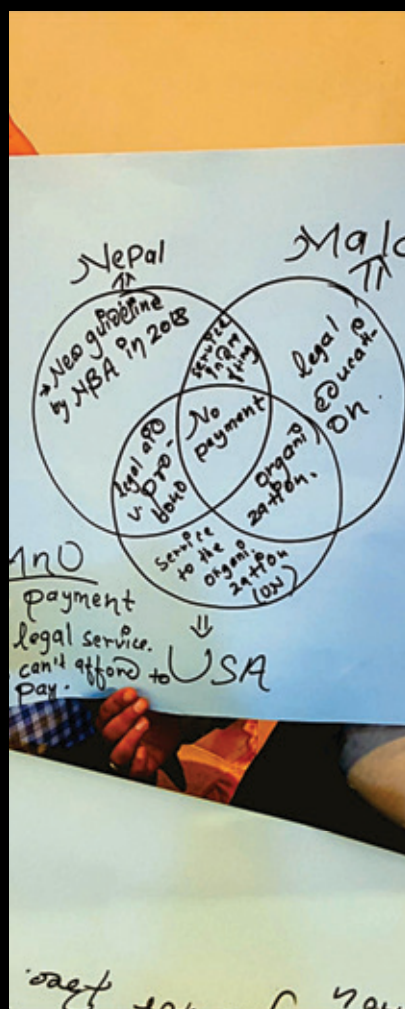 Nepal
Mala
→ New guideline
by NBA in 2018
service
legal
educati-
on.
No
payment
legal aid
v. pro-
bono
organi
zation.
service
to the
organi
zation
(UN)
USA
payment
legal service.
can't afford to
pay.